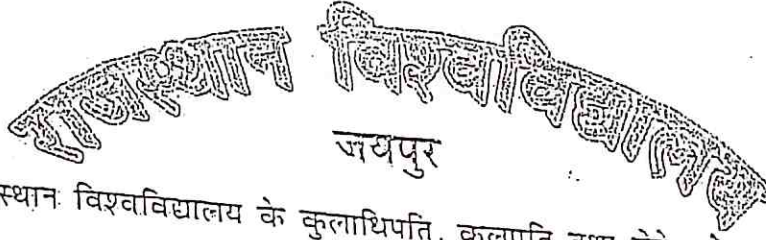 राजस्थान विश्वविद्यालय
जयपुर
स्थान विश्वविद्यालय के कुलाधिपति, कुलपति तथा